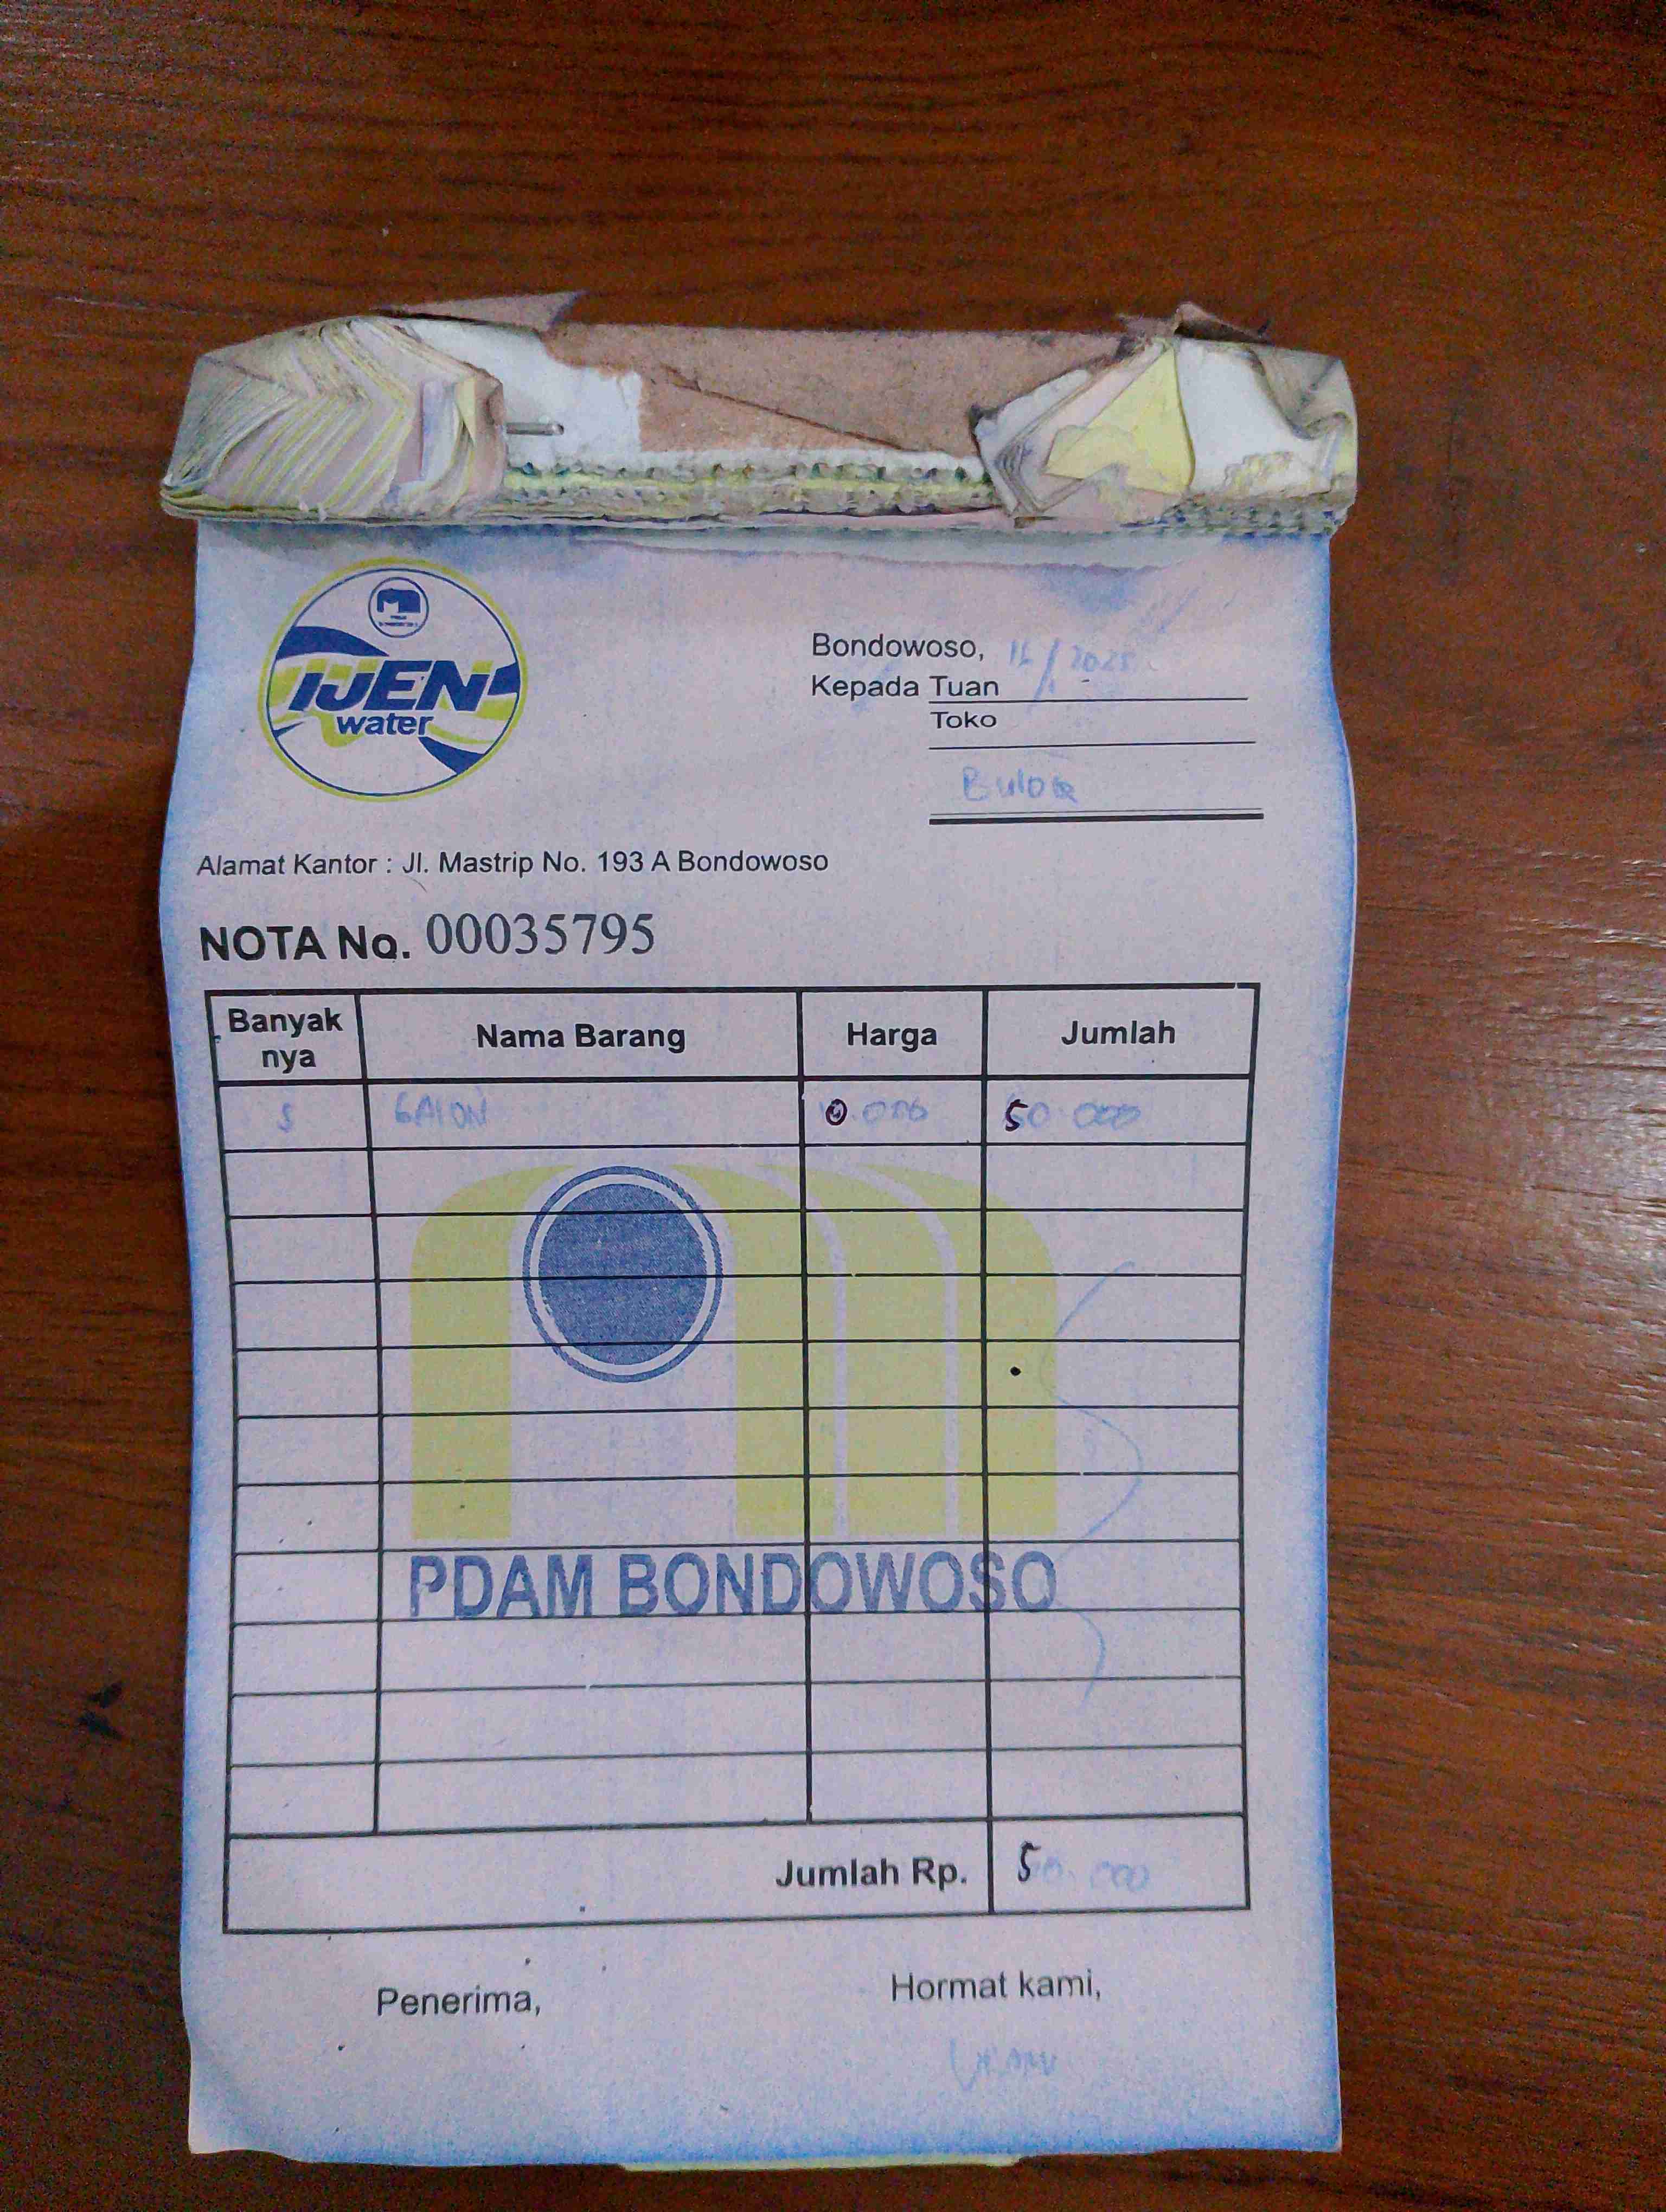 IJEN
water
Bondowoso, /2025
Kepada Tuan
Toko
Bulog
Alamat Kantor : Jl. Mastrip No. 193 A Bondowoso
NOTA No. 00035795
Banyak nya Nama Barang Harga Jumlah
5 GALON 10.000 50.000
PDAM BONDOWOSO
Jumlah Rp. 50.000
Penerima, Hormat kami,